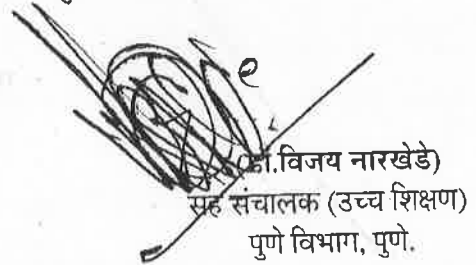 (डॉ.विजय नारखेडे)
सह संचालक (उच्च शिक्षण)
पुणे विभाग, पुणे.